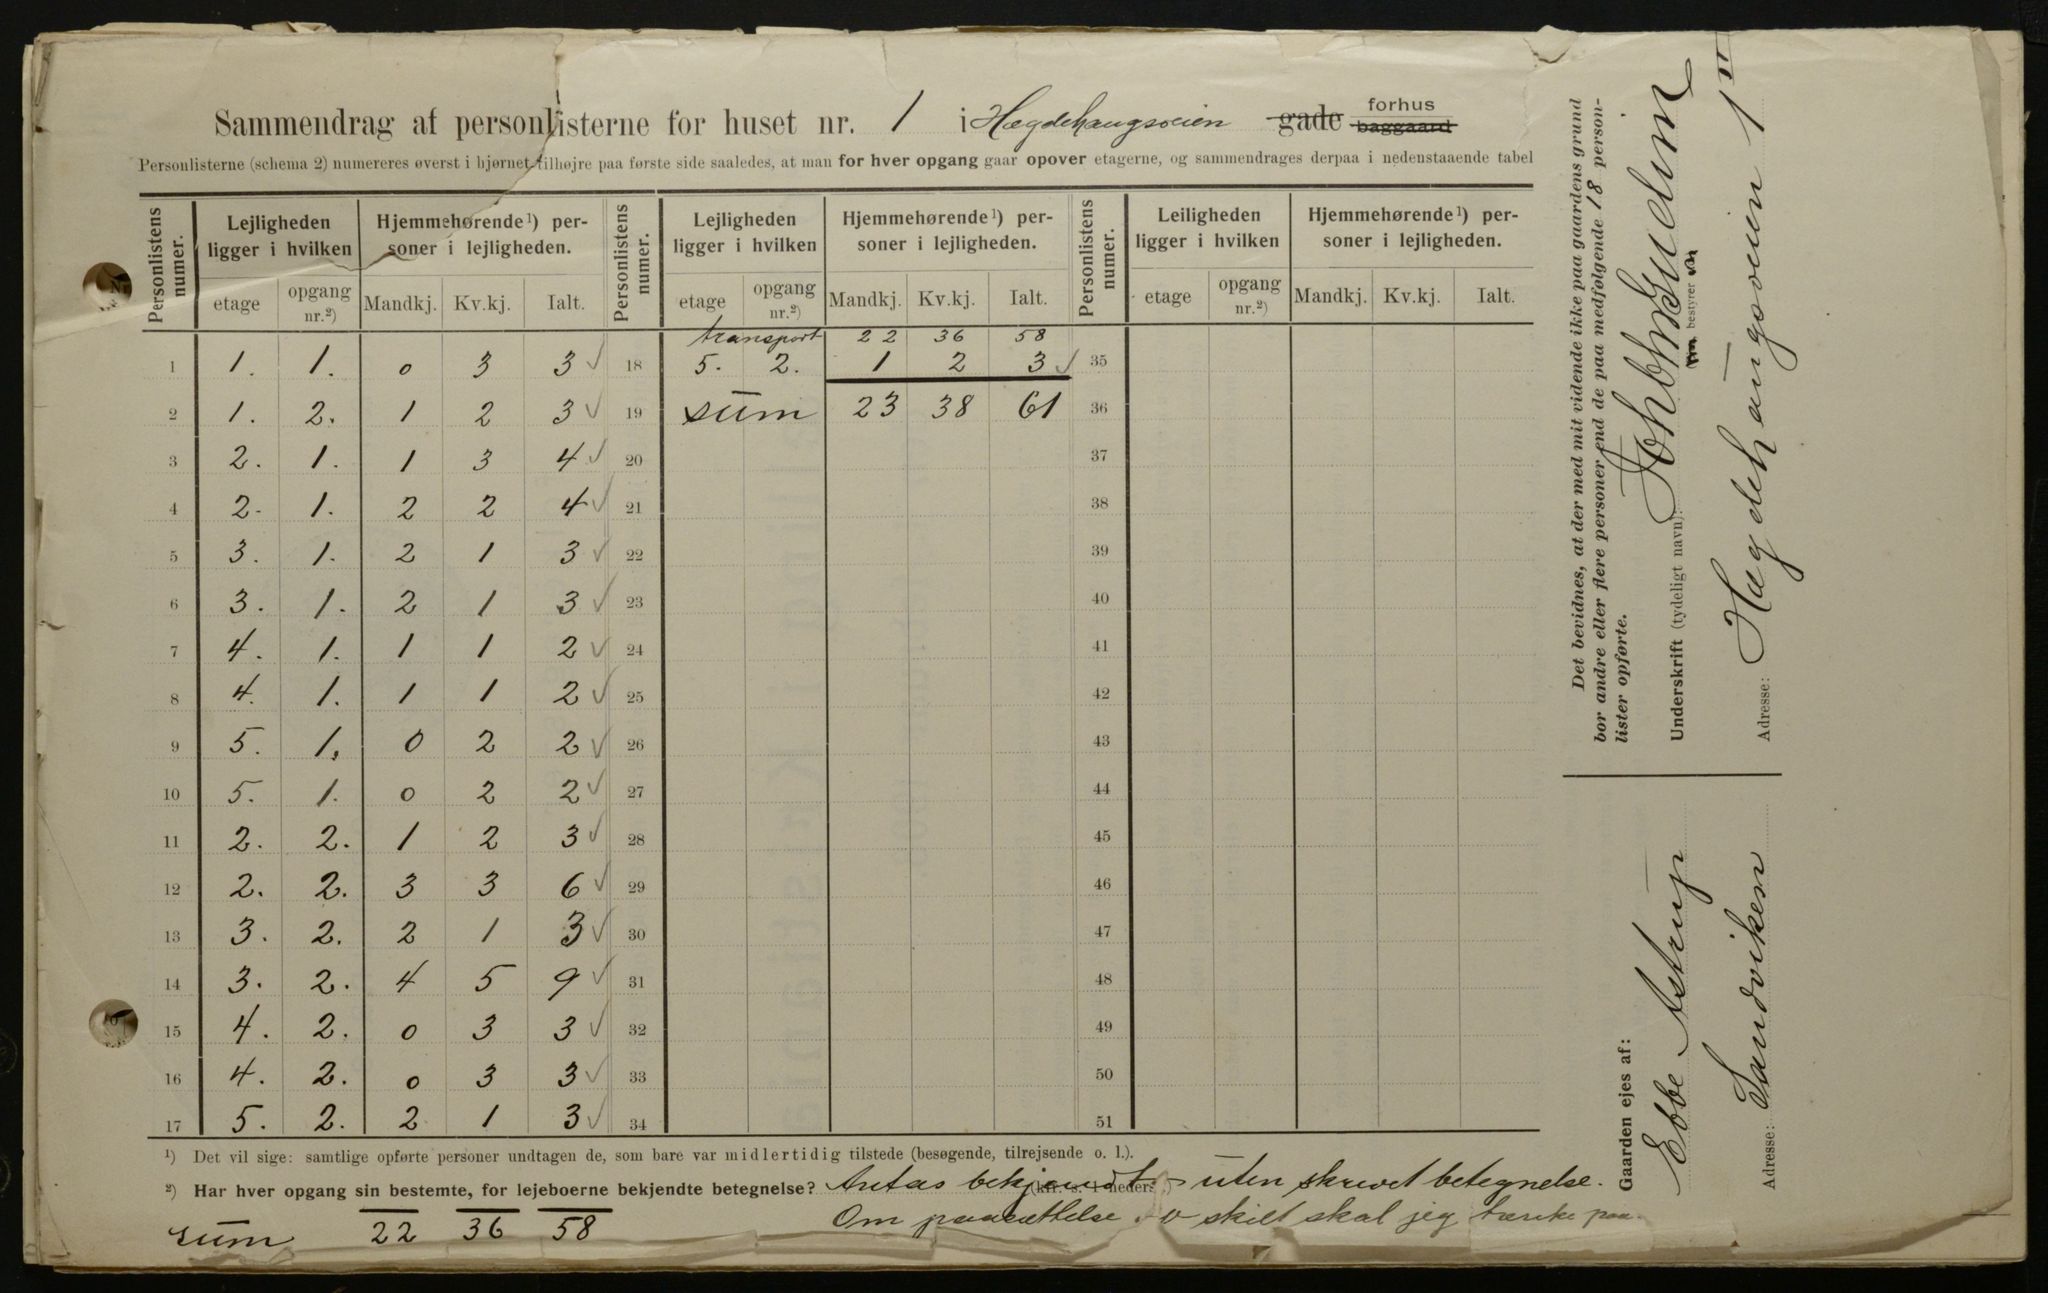 Sammendrag af personlisterne for huset nr. 1 i Hægdehaugsveien gade forhus baggaard
Personlisterne (schema 2) numereres øverst i hjørnet tilhøjre paa første side saaledes, at man for hver opgang gaar opover etagerne, og sammendrages derpaa i nedenstaaende tabel
Personlistens numer. | Lejligheden ligger i hvilken | Hjemmehørende ¹) personer i lejligheden. | Personlistens numer. | Lejligheden ligger i hvilken | Hjemmehørende ¹) personer i lejligheden. | Personlistens numer. | Leiligheden ligger i hvilken | Hjemmehørende ¹) personer i lejligheden.
etage | opgang nr.²) | Mandkj. | Kv.kj. | Ialt. | etage | opgang nr.²) | Mandkj. | Kv.kj. | Ialt. | etage | opgang nr.²) | Mandkj. | Kv.kj. | Ialt.
transport 22 36 58
1 | 1. | 1. | 0 | 3 | 3 ✓ | 18 | 5. | 2. | 1 | 2 | 3 ✓ | 35
2 | 1. | 2. | 1 | 2 | 3 ✓ | 19 | sum | 23 | 38 | 61 | 36
3 | 2. | 1. | 1 | 3 | 4 ✓ | 20 | 37
4 | 2. | 1. | 2 | 2 | 4 ✓ | 21 | 38
5 | 3. | 1. | 2 | 1 | 3 ✓ | 22 | 39
6 | 3. | 1. | 2 | 1 | 3 ✓ | 23 | 40
7 | 4. | 1. | 1 | 1 | 2 ✓ | 24 | 41
8 | 4. | 1. | 1 | 1 | 2 ✓ | 25 | 42
9 | 5. | 1. | 0 | 2 | 2 ✓ | 26 | 43
10 | 5. | 1. | 0 | 2 | 2 ✓ | 27 | 44
11 | 2. | 2. | 1 | 2 | 3 ✓ | 28 | 45
12 | 2. | 2. | 3 | 3 | 6 ✓ | 29 | 46
13 | 3. | 2. | 2 | 1 | 3 ✓ | 30 | 47
14 | 3. | 2. | 4 | 5 | 9 ✓ | 31 | 48
15 | 4. | 2. | 0 | 3 | 3 ✓ | 32 | 49
16 | 4. | 2. | 0 | 3 | 3 ✓ | 33 | 50
17 | 5. | 2. | 2 | 1 | 3 ✓ | 34 | 51
¹) Det vil sige: samtlige opførte personer undtagen de, som bare var midlertidig tilstede (besøgende, tilrejsende o. l.).
²) Har hver opgang sin bestemte, for lejeboerne bekjendte betegnelse? Antas bekjendt uten skrevet betegnelse.
Om paasættelse skilt skal jeg tænke paa.
sum 22 36 58
Det bevidnes, at der med mit vidende ikke paa gaardens grund
bor andre eller flere personer end de paa medfølgende 18 person-
lister opførte.
Underskrift (tydeligt navn):
bestyrer
Adresse: Hægdehaugsveien 1
Gaarden ejes af:
Ebbe Astrup
Adresse: Sandviken